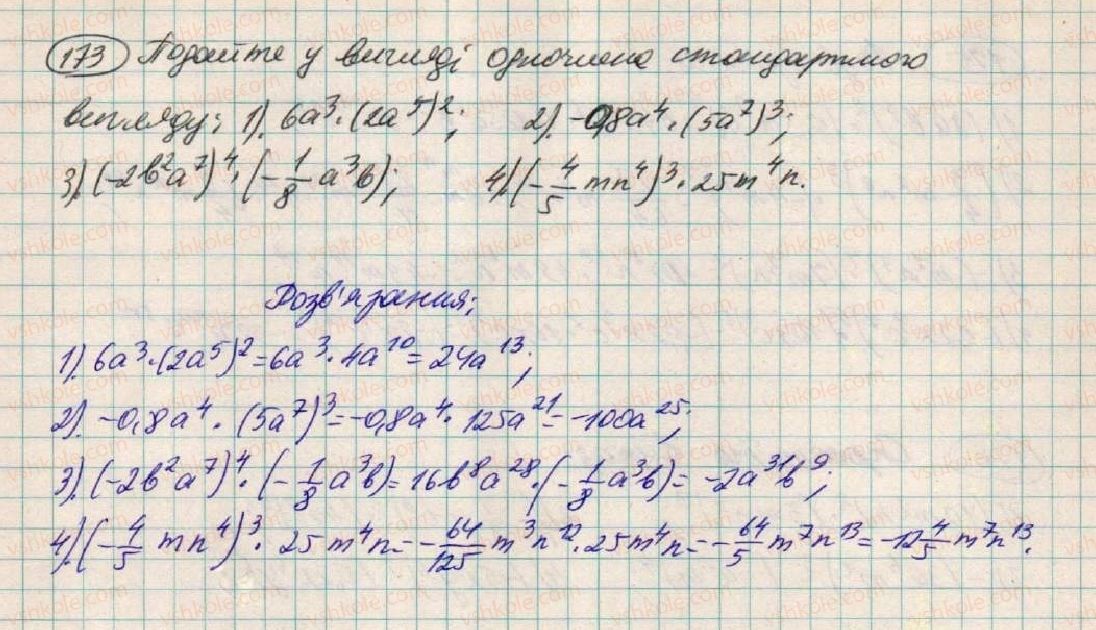 173 Подайте у вигляді одночлена стандартного
вигляду: 1). 6a³·(2a⁵)²; 2). -0,8a⁴·(5a⁷)³;
3). (-2b²a⁷)⁴·(-1/8 a³b); 4). (-4/5 mn⁴)³·25m⁴n.
Розв'язання:
1). 6a³·(2a⁵)²=6a³·4a¹⁰=24a¹³;
2). -0,8a⁴·(5a⁷)³=-0,8a⁴·125a²¹=-100a²⁵;
3). (-2b²a⁷)⁴·(-1/8 a³b)=16b⁸a²⁸·(-1/8 a³b)=-2a³¹b⁹;
4). (-4/5 mn⁴)³·25m⁴n=-64/125 m³n¹²·25m⁴n=-64/5 m⁷n¹³=-12 4/5 m⁷n¹³.